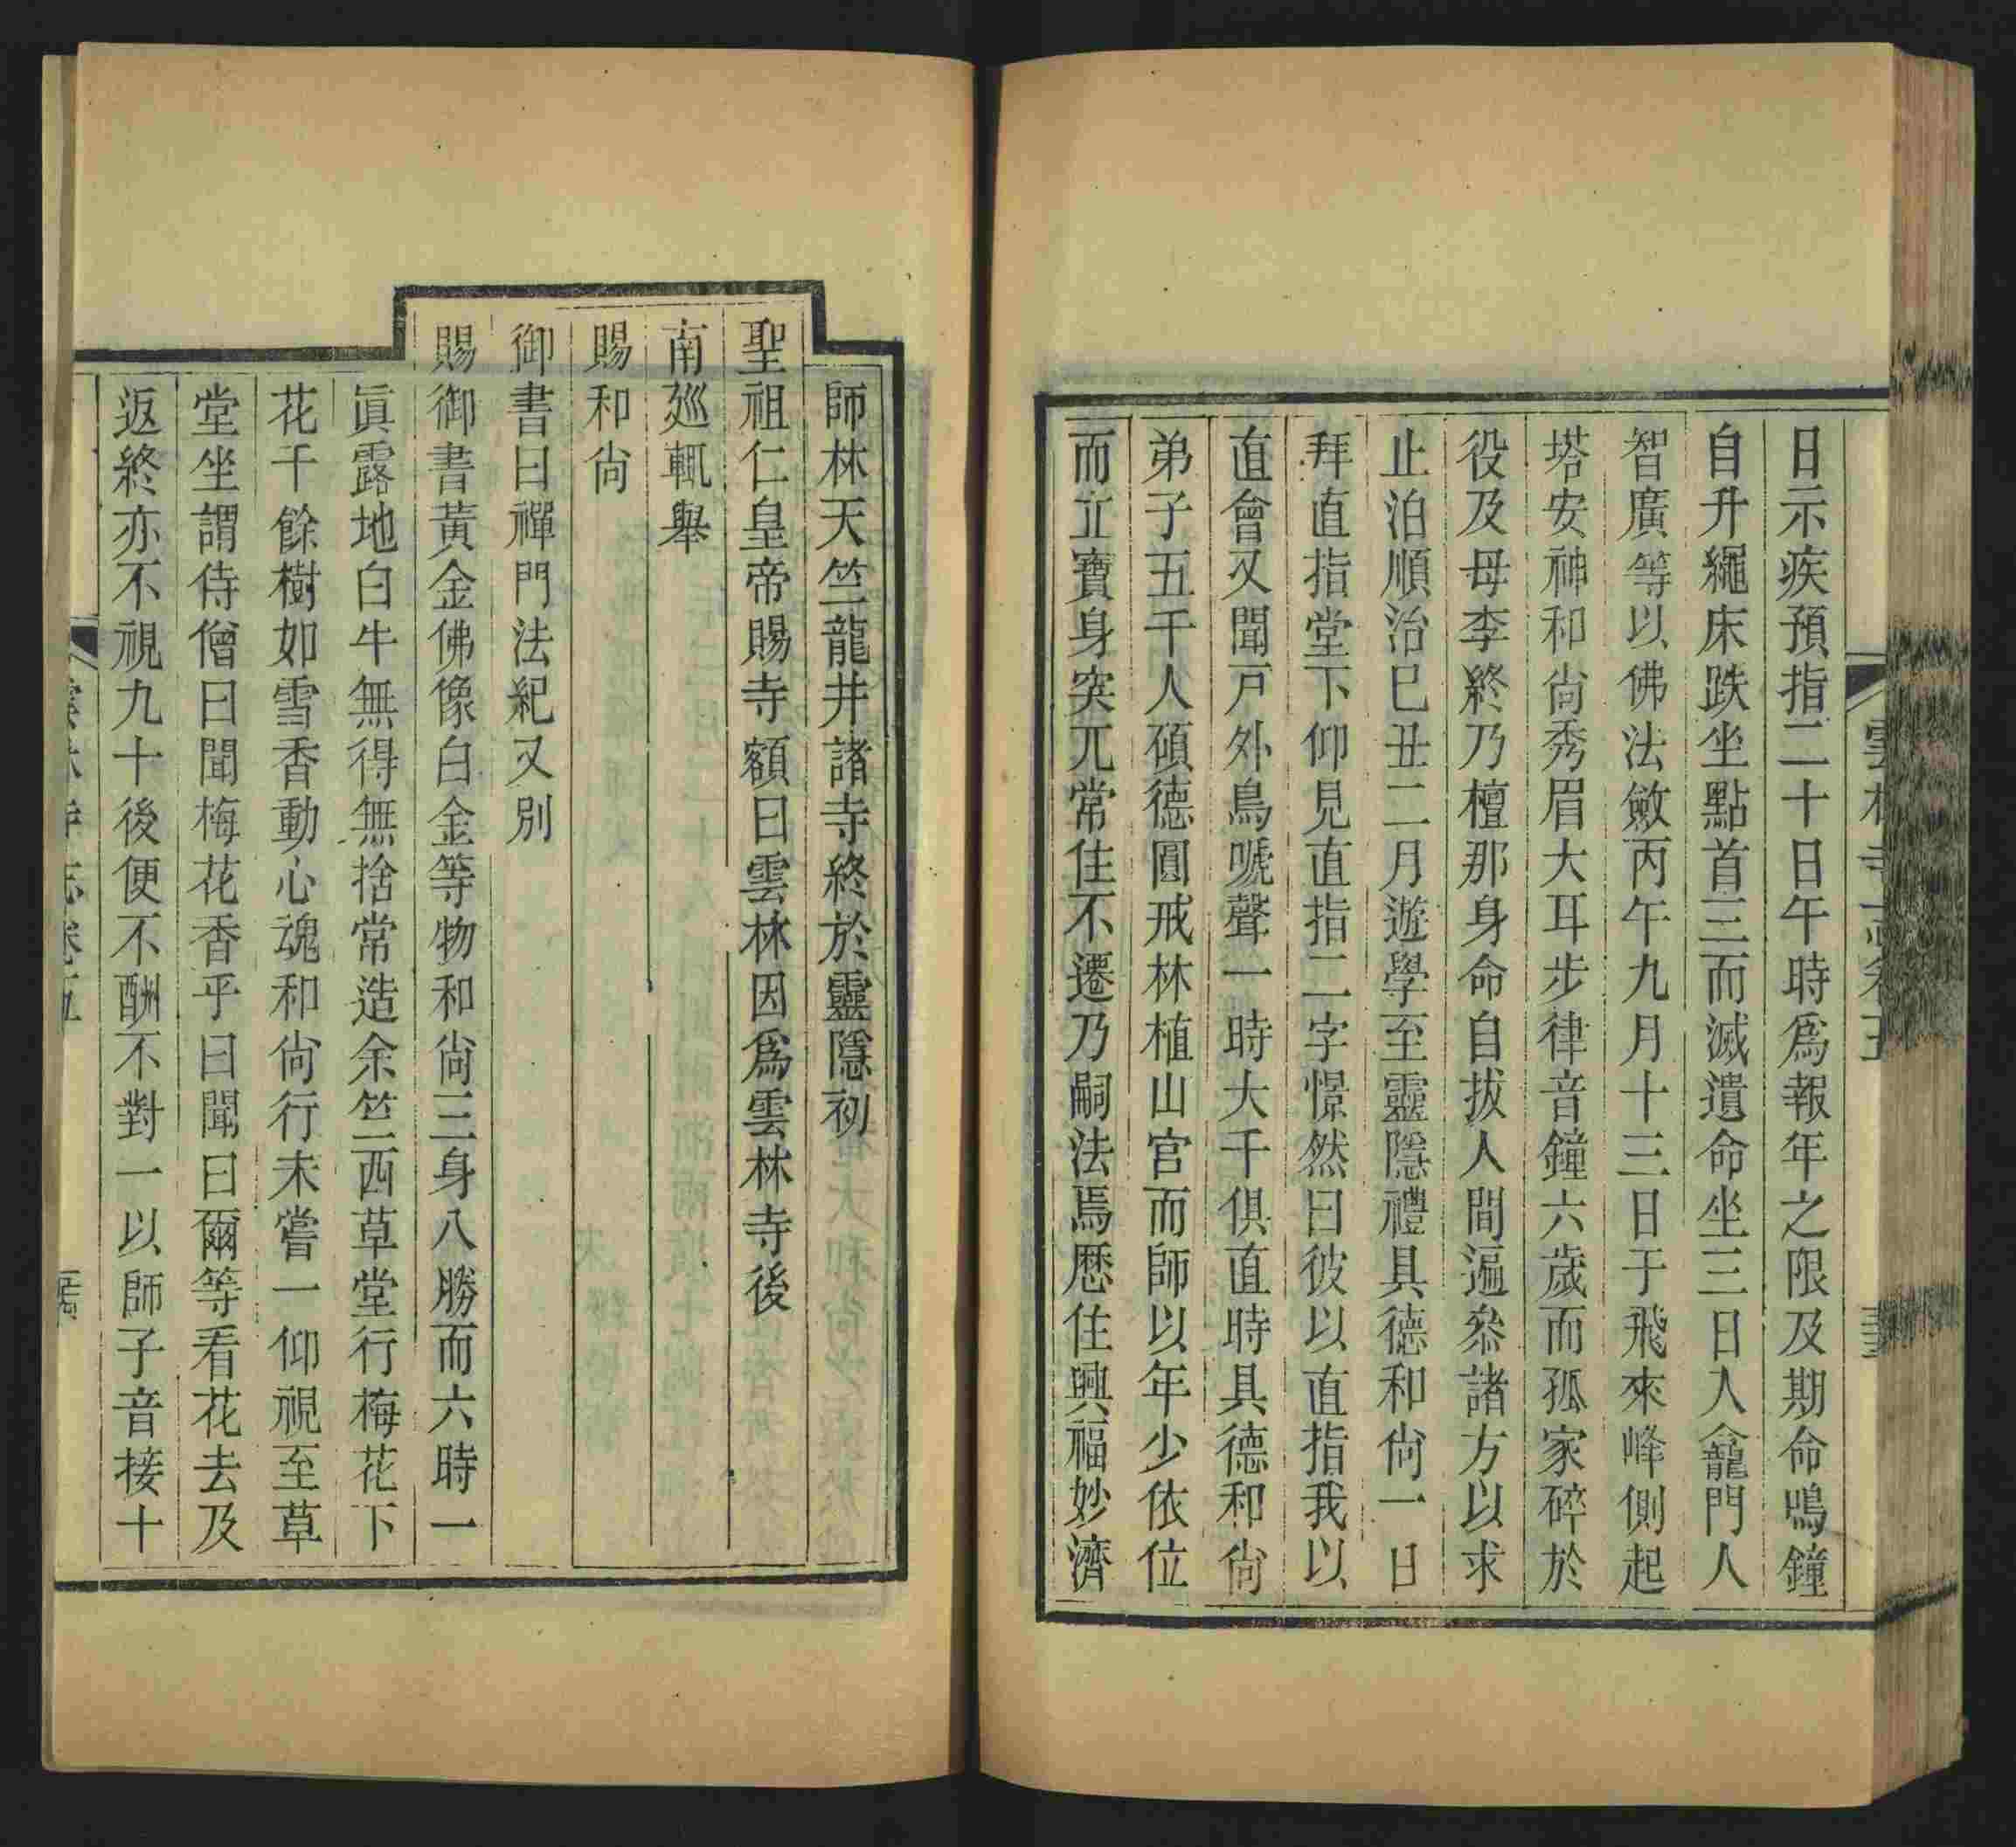 日示疾預指二十日午時爲報年之限及期命鳴鐘
自升繩床趺坐點首三而滅遺命坐三日入龕門人
智廣等以佛法斂丙午九月十三日于飛來峰側起
塔安神和尙秀眉大耳步律音鐘六歲而孤家碎於
役及母李終乃檀那身命自拔人間遍叅諸方以求
止泊順治巳丑二月遊學至靈隱禮具德和尙一日
拜直指堂下仰見直指二字憬然曰彼以直指我以
直會又聞戸外鳥嗁聲一時大千俱直時具德和尙
弟子五千人碩德圓戒林植山宮而師以年少依位
而立寶身突兀常住不遷乃嗣法焉歷住興福妙濟
師林天竺龍井諸寺終於靈隱初
聖祖仁皇帝賜寺額曰雲林因爲雲林寺後
南廵輒舉
賜和尙
御書曰禪門法紀又別
賜御書黃金佛像白金等物和尙三身八勝而六時一
眞露地白牛無得無捨常造余竺西草堂行梅花下
花千餘樹如雪香動心魂和尙行未嘗一仰視至草
堂坐謂侍僧曰聞梅花香乎曰聞曰爾等看花去及
返終亦不視九十後便不酬不對一以師子音接十